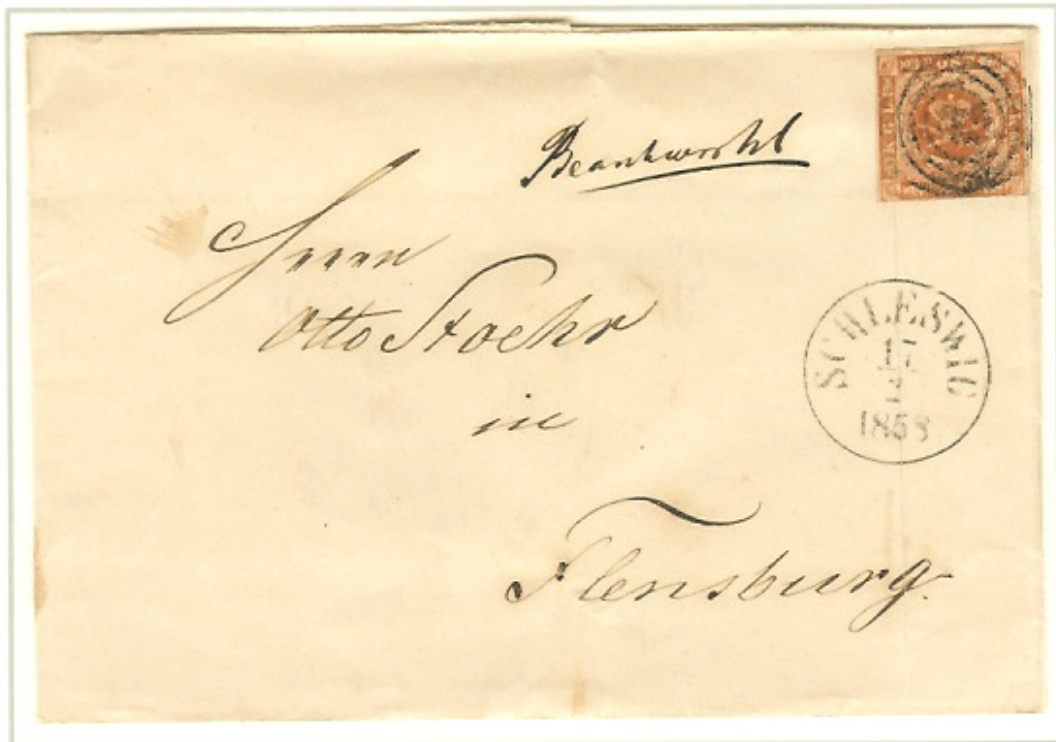 Beantwortet
Herrn
Otto Stoehr
in
Flensburg.
SCHLESWIG
1858